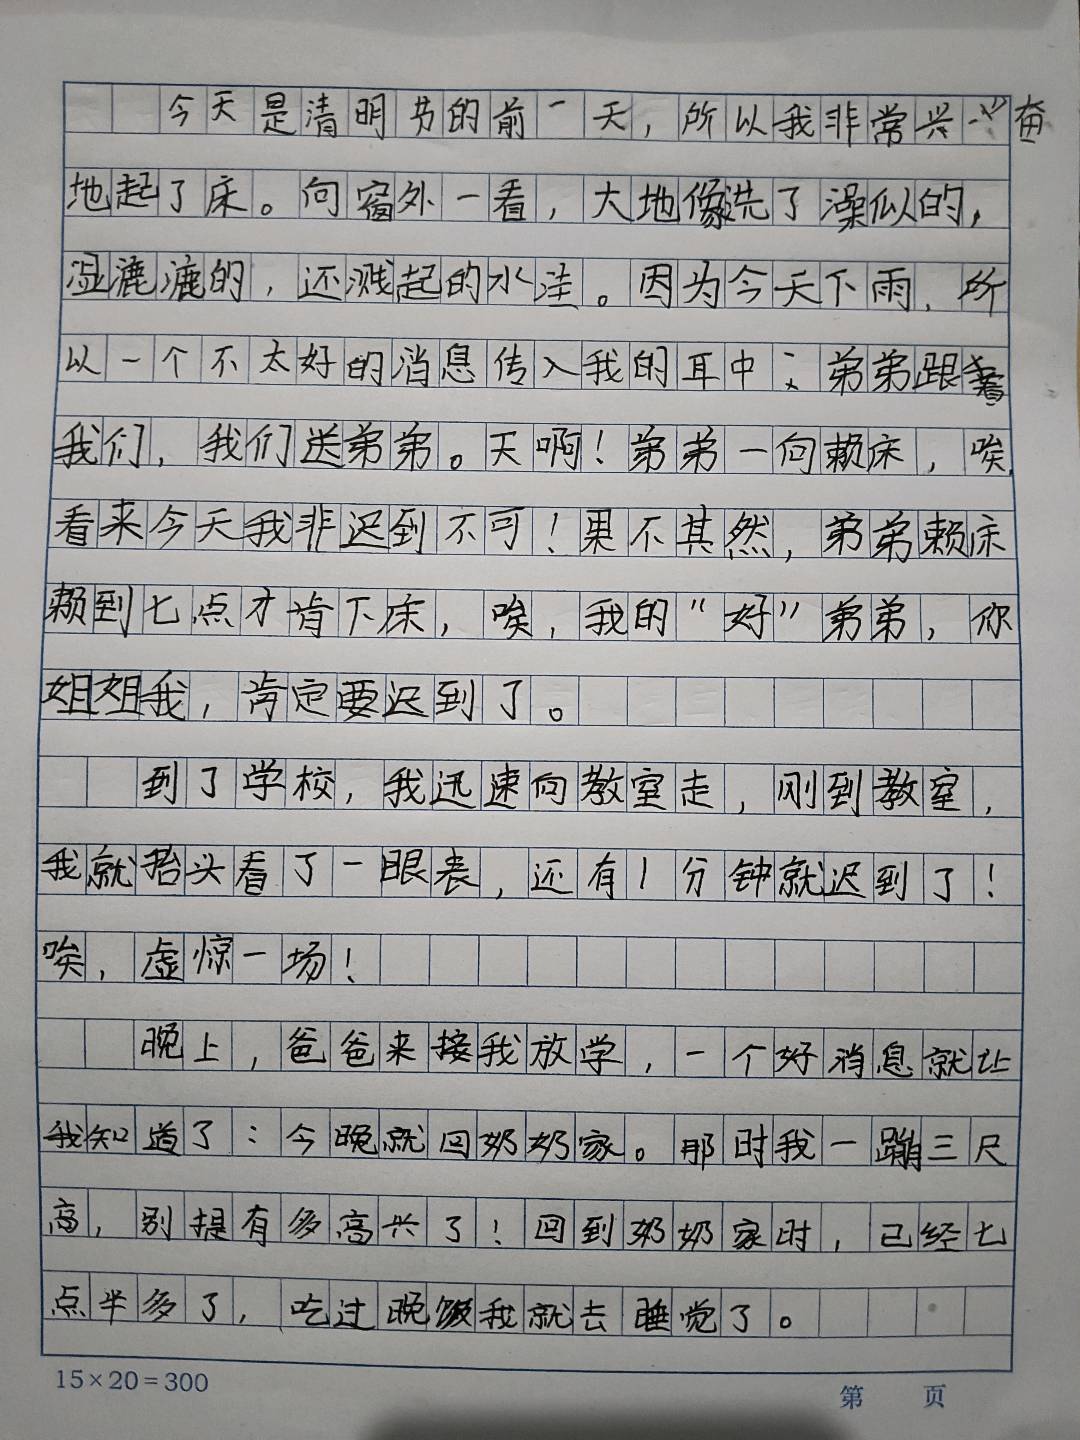 今天是清明节的前一天，所以我非常兴奋
地起了床。向窗外一看，大地像洗了澡似的，
湿漉漉的，还溅起的水洼。因为今天下雨，所
以一个不太好的消息传入我的耳中：弟弟跟着
我们，我们送弟弟。天啊！弟弟一向赖床，唉，
看来今天我非迟到不可！果不其然，弟弟赖床
赖到七点才肯下床，唉，我的“好”弟弟，你
姐姐我，肯定要迟到了。
到了学校，我迅速向教室走，刚到教室，
我就抬头看了一眼表，还有1分钟就迟到了！
唉，虚惊一场！
晚上，爸爸来接我放学，一个好消息就让
我知道了：今晚就回奶奶家。那时我一蹦三尺
高，别提有多高兴了！回到奶奶家时，已经七
点半多了，吃过晚饭我就去睡觉了。
15×20=300
第 页